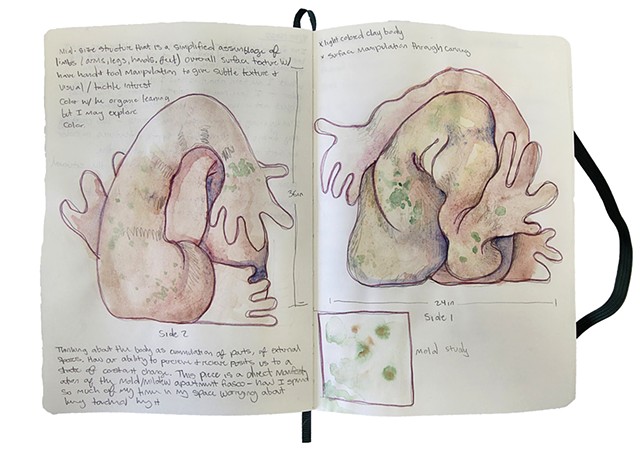 Mid-size structure that is a simplified assemblage of
limbs (arms, legs, hands, feet) overall surface texture w/
have hand & tool manipulation to give subtle texture &
visual / tactile interest
Color w/ be organic leaning
but I may explore
Color.
36in
Side 2
Thinking about the body as accumulation of parts, of external
spaces. How our ability to perceive & receive posits us to a
state of constant change. This piece is a direct
of the mold/mildew apartment fiasco - how I spent
so much of my time in my space worrying about
being touched by it
* light colored clay body
* Surface manipulation through carving
24in
Side 1
mold study